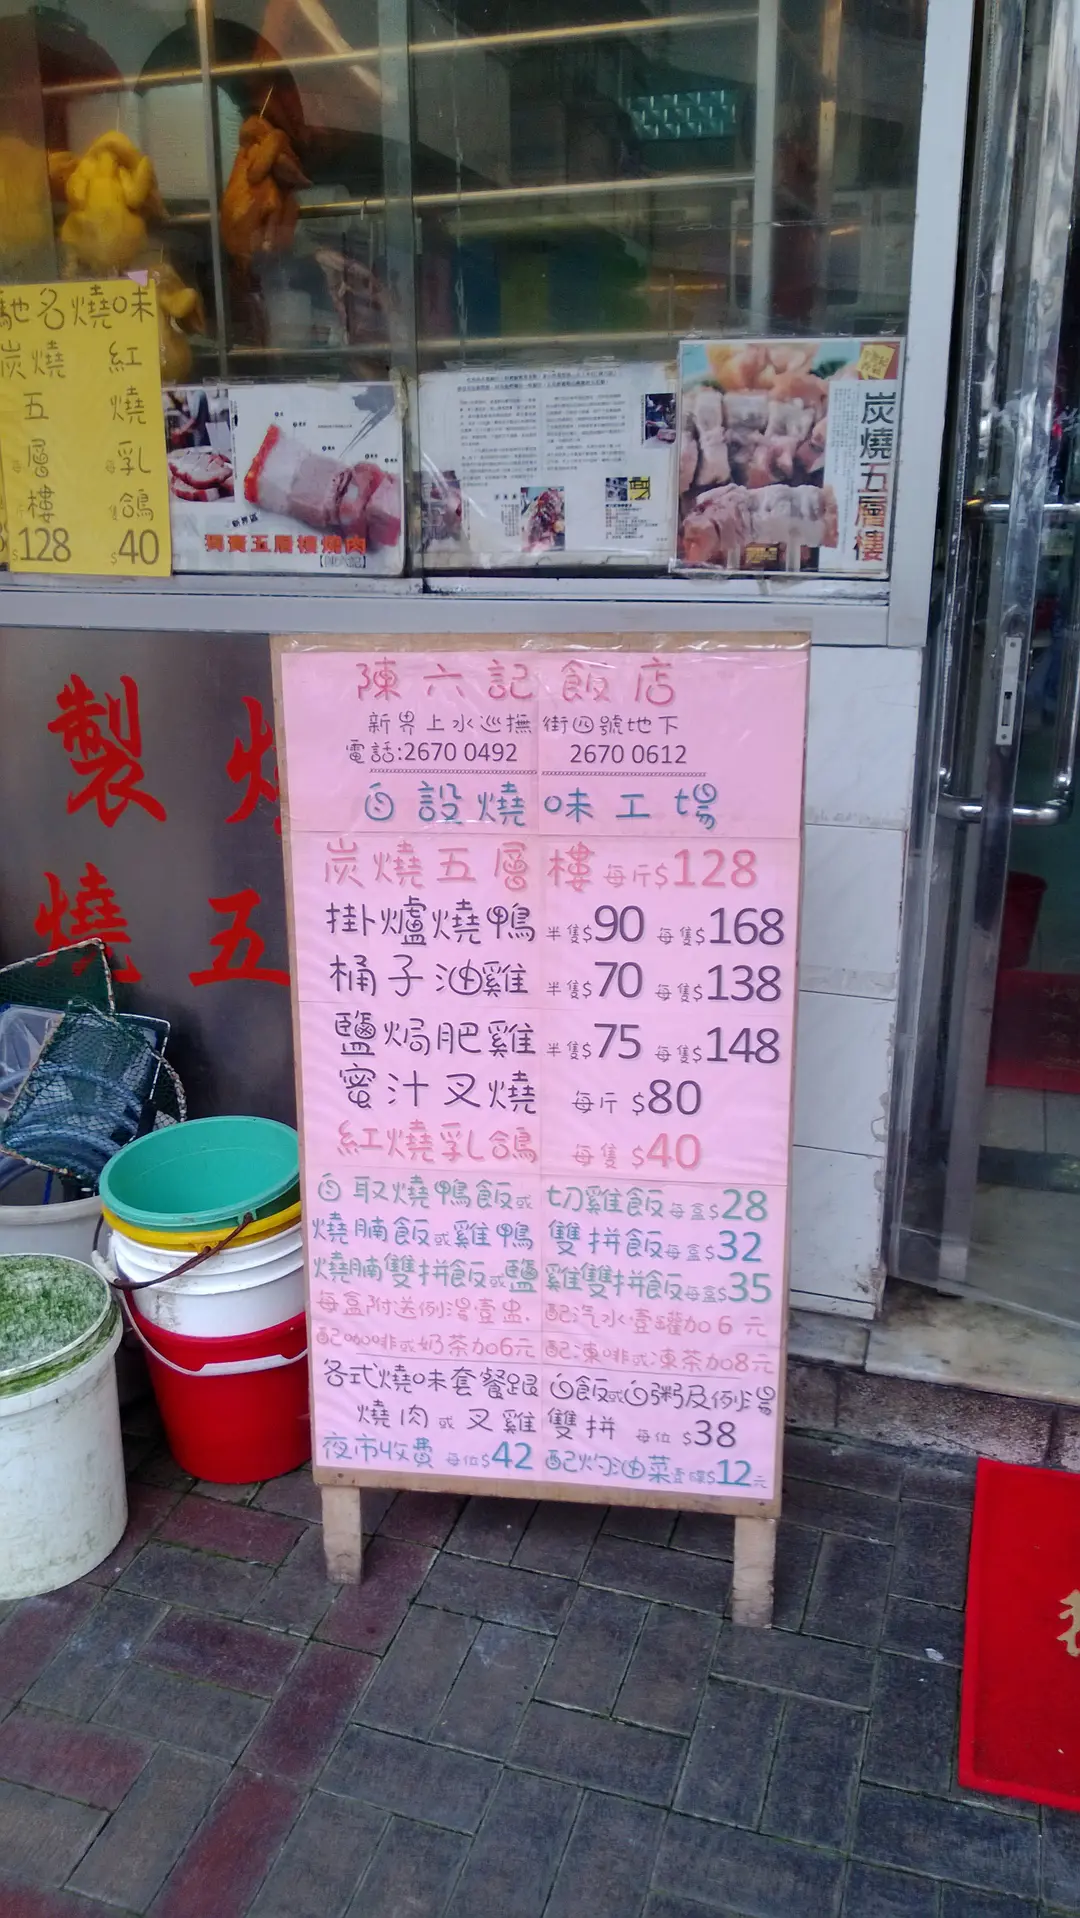 馳名燒味
炭燒五層樓 每斤$128
紅燒乳鴿 每隻$40
新界區
獨賣五層樓燒肉
【陳六記】
炭燒五層樓
製 燒
燒 五
陳六記飯店
新界上水巡撫街四號地下
電話:2670 0492 2670 0612
自設燒味工場
炭燒五層樓 每斤$128
掛爐燒鴨 半隻$90 每隻$168
桶子油雞 半隻$70 每隻$138
鹽焗肥雞 半隻$75 每隻$148
蜜汁叉燒 每斤 $80
紅燒乳鴿 每隻 $40
自取燒鴨飯或切雞飯每盒$28
燒腩飯或雞鴨雙拼飯每盒$32
燒腩雙拼飯或鹽雞雙拼飯每盒$35
每盒附送例湯壹盅. 配汽水壹罐加6元
配咖啡或奶茶加6元 配凍啡或凍茶加8元
各式燒味套餐跟白飯或白粥及例湯
燒肉或叉雞雙拼 每位 $38
夜市收費 每位$42 配灼油菜壹碟$12元